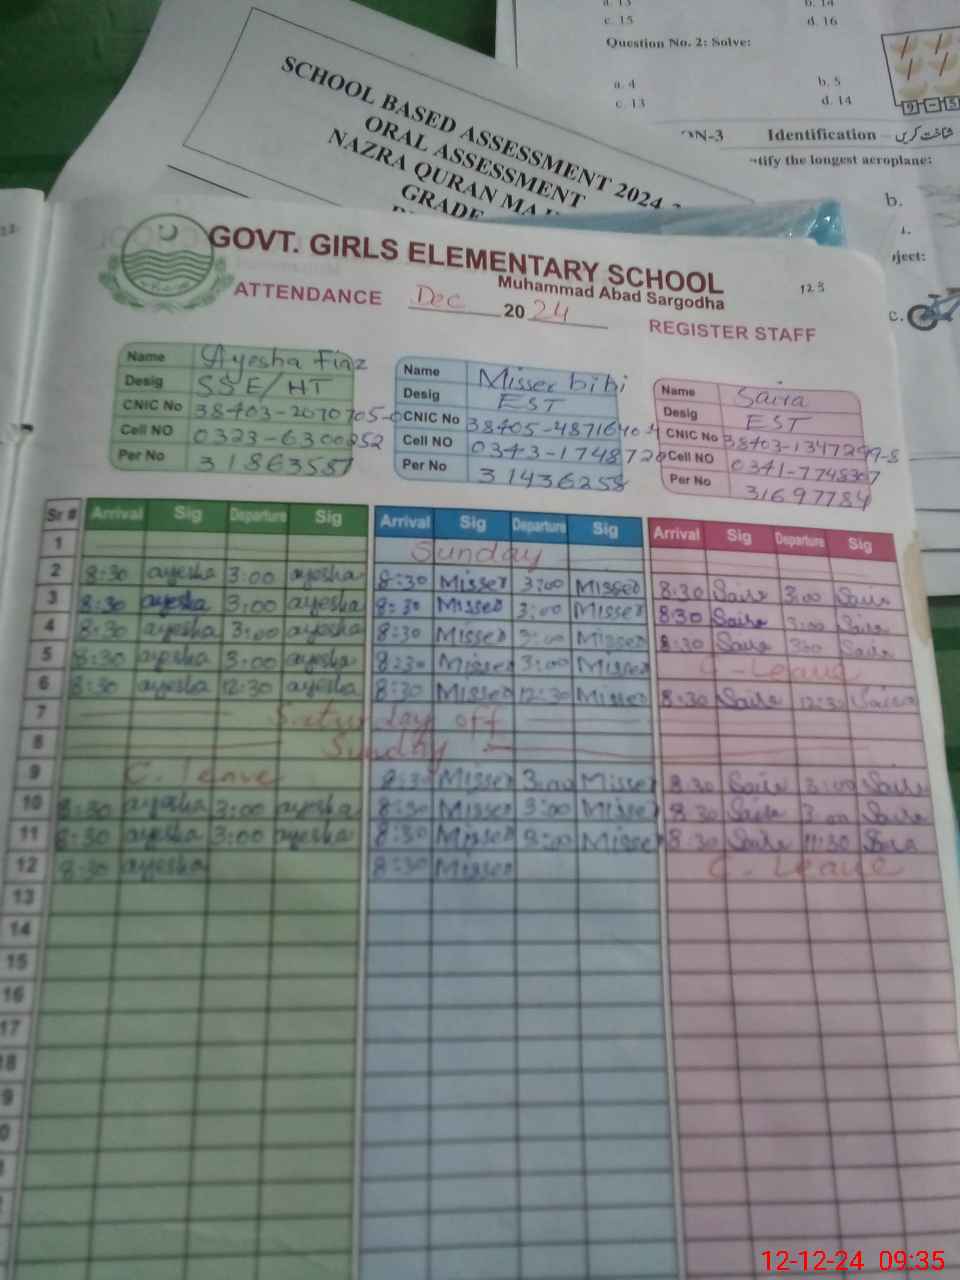 a. 13
b. 14
c. 15
d. 16
Question No. 2: Solve:
a. 4
b. 5
c. 13
d. 14
9 - 5
ON-3 Identification - شناخت کریں
tify the longest aeroplane:
b.
ject:
c.
SCHOOL BASED ASSESSMENT 2024
ORAL ASSESSMENT
NAZRA QURAN MAJ
GRADE
GOVT. GIRLS ELEMENTARY SCHOOL
Muhammad Abad Sargodha
123
ATTENDANCE Dec 2024 REGISTER STAFF
Name Ayesha Fiaz
Desig SSE/HT
CNIC No 38403-2070705-0
Cell NO 0323-6300252
Per No 31863587
Name Misser bibi
Desig EST
CNIC No 38405-4871640
Cell NO 0343-174872
Per No 31436258
Name Saira
Desig EST
CNIC No 38403-1347299-8
Cell NO 0341-7748367
Per No 31697784
Sr # Arrival Sig Departure Sig Arrival Sig Departure Sig Arrival Sig Departure Sig
1 Sunday
2 8:30 ayesha 3:00 ayesha 8:30 Misser 3:00 Misser 8:30 Saira 3:00 Saira
3 8:30 ayesha 3:00 ayesha 8:30 Misser 3:00 Misser 8:30 Saira 3:00 Saira
4 8:30 ayesha 3:00 ayesha 8:30 Misser 3:00 Misser 8:30 Saira 3:00 Saira
5 8:30 ayesha 3:00 ayesha 8:30 Misser 3:00 Misser C-Leave
6 8:30 ayesha 12:30 ayesha 8:30 Misser 12:30 Misser 8:30 Saira 12:30 Saira
7 Saturday off
8 Sunday
9 C. leave 8:30 Misser 3:00 Misser 8:30 Saira 3:00 Saira
10 8:30 ayesha 3:00 ayesha 8:30 Misser 3:00 Misser 8:30 Saira 3:00 Saira
11 8:30 ayesha 3:00 ayesha 8:30 Misser 3:00 Misser 8:30 Saira 11:30 Saira
12 8:30 ayesha 8:30 Misser C. Leave
13
14
15
16
17
18
9
0
12-12-24 09:35